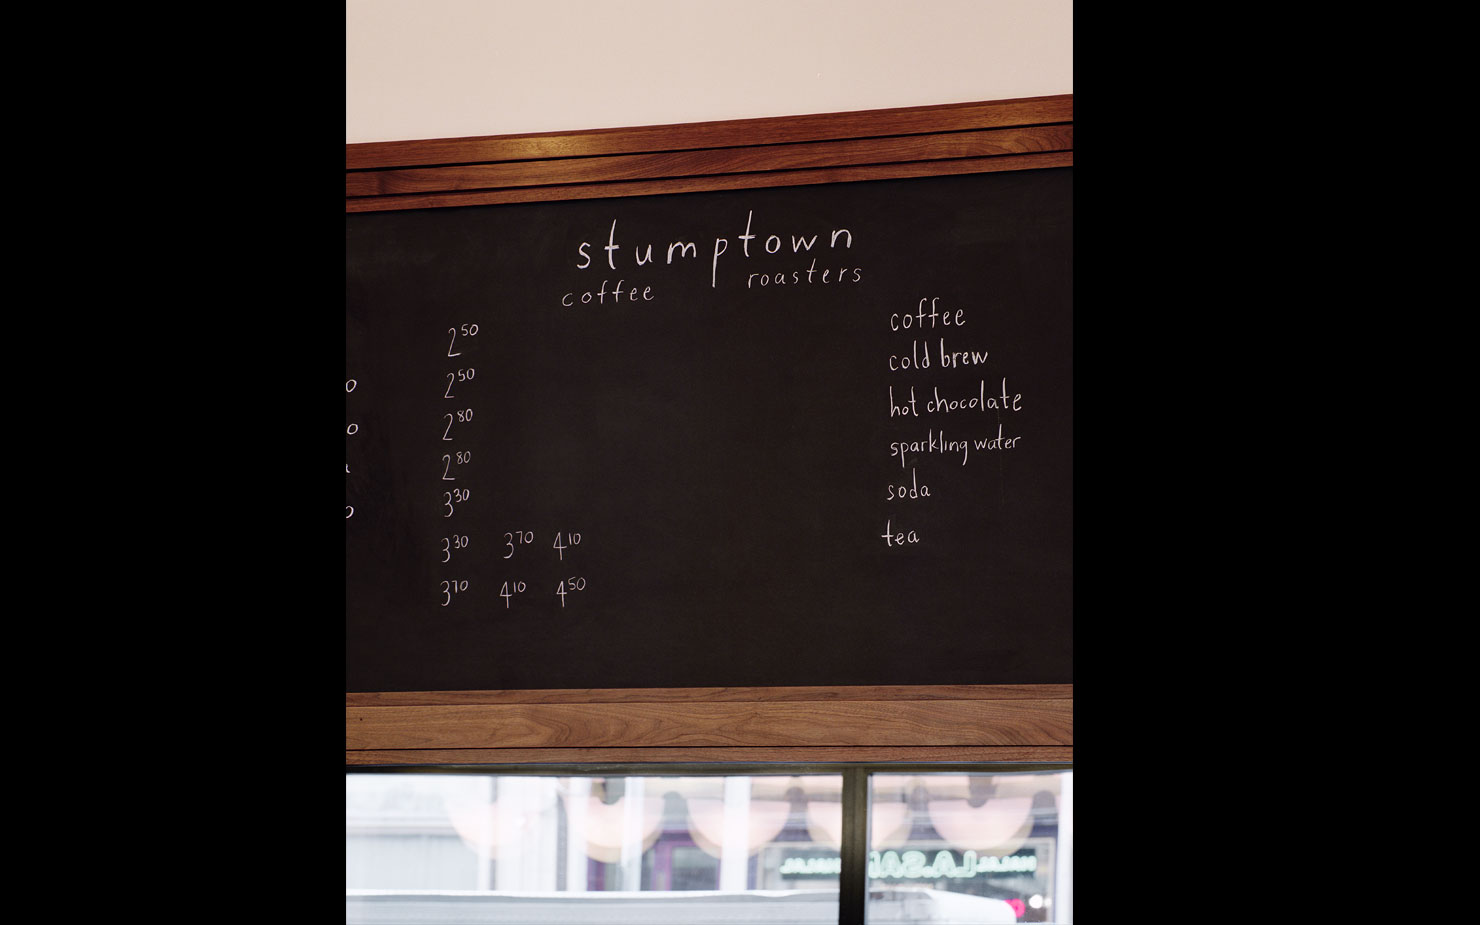 stumptown
coffee roasters
2 50
2 50
2 80
2 80
3 30
3 30 3 70 4 10
3 70 4 10 4 50
coffee
cold brew
hot chocolate
sparkling water
soda
tea